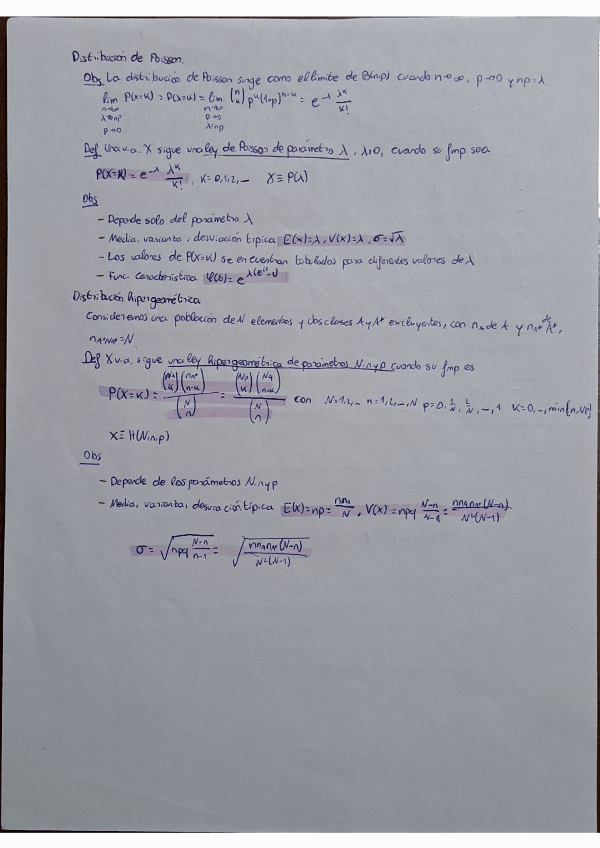 Distribución de Poisson.
Obs La distribución de Poisson surge como el límite de B(n,p) cuando n→∞, p→0 y np=λ.
lim P(X=k) = P(X=k) = lim (n k) p^k (1-p)^{n-k} = e^{-λ} λ^k / k!
n→∞ n→∞
λ=np p→0
p→0 λ=np
Def Una v.a. X sigue una ley de Poisson de parámetro λ, λ>0, cuando su fmp sea
P(X=k) = e^{-λ} λ^k / k! , k=0,1,2,... X≡P(λ)
Obs
- Depende solo del parámetro λ
- Media, varianza, desviación típica E(X)=λ, V(X)=λ, σ=√λ
- Los valores de P(X=k) se encuentran tabulados para diferentes valores de λ
- Func. característica φ(t)=e^{λ(e^{it}-1)}
Distribución hipergeométrica
Consideremos una población de N elementos y dos clases A y A* excluyentes, con n_A de A y n_A* de A*,
n_A+n_A*=N.
Def X v.a. sigue una ley hipergeométrica de parámetros N,n y p cuando su fmp es
P(X=k) = (n_A k)(n_A* n-k) / (N n) = (Np k)(Nq n-k) / (N n) con N=1,2,... n=1,2,...,N p=0, 1/N, 2/N, ..., 1 k=0,..., min{n,Np}
X≡H(N,n,p)
Obs
- Depende de los parámetros N,n y p
- Media, varianza, desviación típica E(X)=np= n n_A / N , V(X)=npq (N-n)/(N-1) = n n_A n_A* (N-n) / N²(N-1)
σ = √(npq (N-n)/(n-1)) = √(n n_A n_A* (N-n) / N²(N-1))